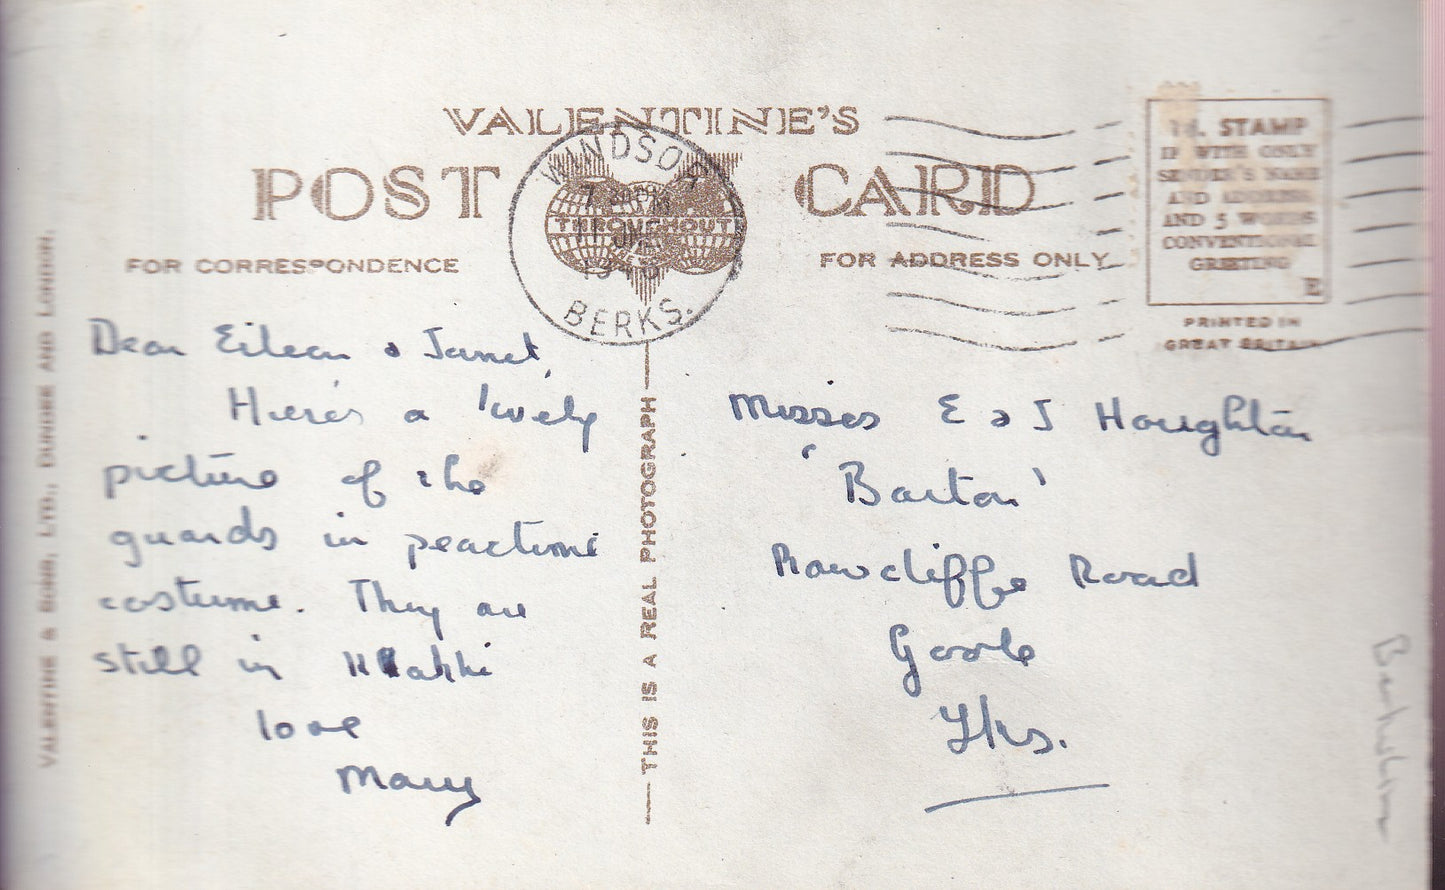 VALENTINE'S
POST CARD
FOR CORRESPONDENCE
FOR ADDRESS ONLY
WINDSOR
BERKS.
THROUGHOUT
STAMP
IF WITH ONLY
SENDER'S NAME
AND ADDRESS
AND 5 WORDS
CONVENTIONAL
GREETING
E
PRINTED IN
GREAT BRITAIN
VALENTINE & SONS, LTD., DUNDEE AND LONDON.
THIS IS A REAL PHOTOGRAPH
Dear Eileen & Janet,
Here's a lovely
picture of the
guards in peactime
costume. They are
still in khakki
love
Mary
Misses E & J Houghton
'Barton'
Rawcliffe Road
Goole
Yks.